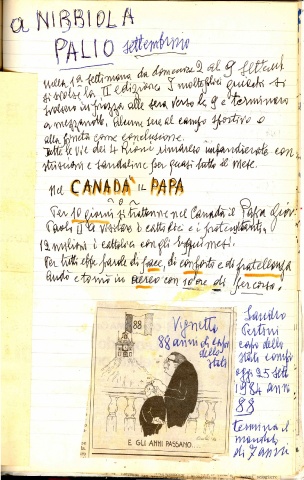 a NIBBIOLA
PALIO settembrino
nella 1ª settimana da domenica 2 al 9 Settemb
si svolse la II edizione. I molteplici giuochi si
svolsero in piazza alla sera verso le 9 e terminaro
a mezzanotte. Alcune sere al campo sportivo o
alla come conclusione.
Tutte le Vie dei 4 Rioni rimasero imbandierate con
striscioni e bandierine per quasi tutto il mese.
nel CANADÀ il PAPA
Per 10 giorni si trattenne nel Canadà il Papa Giov
Paolo II la visitare i cattolici e i protestanti.
12 milioni i cattolici con gli
Per tutti ebbe parole di pace, di conforto e di fratellanza
Andò e tornò in aereo con 10 ore di percorso!
88
Vignetta
88 anni di Capo
dello
Stato
E GLI ANNI PASSANO...
Sandro
Pertini
capo dello
stato compì
oggi 25 sett
1984 anni
88
termina il
mandato
di 7 anni